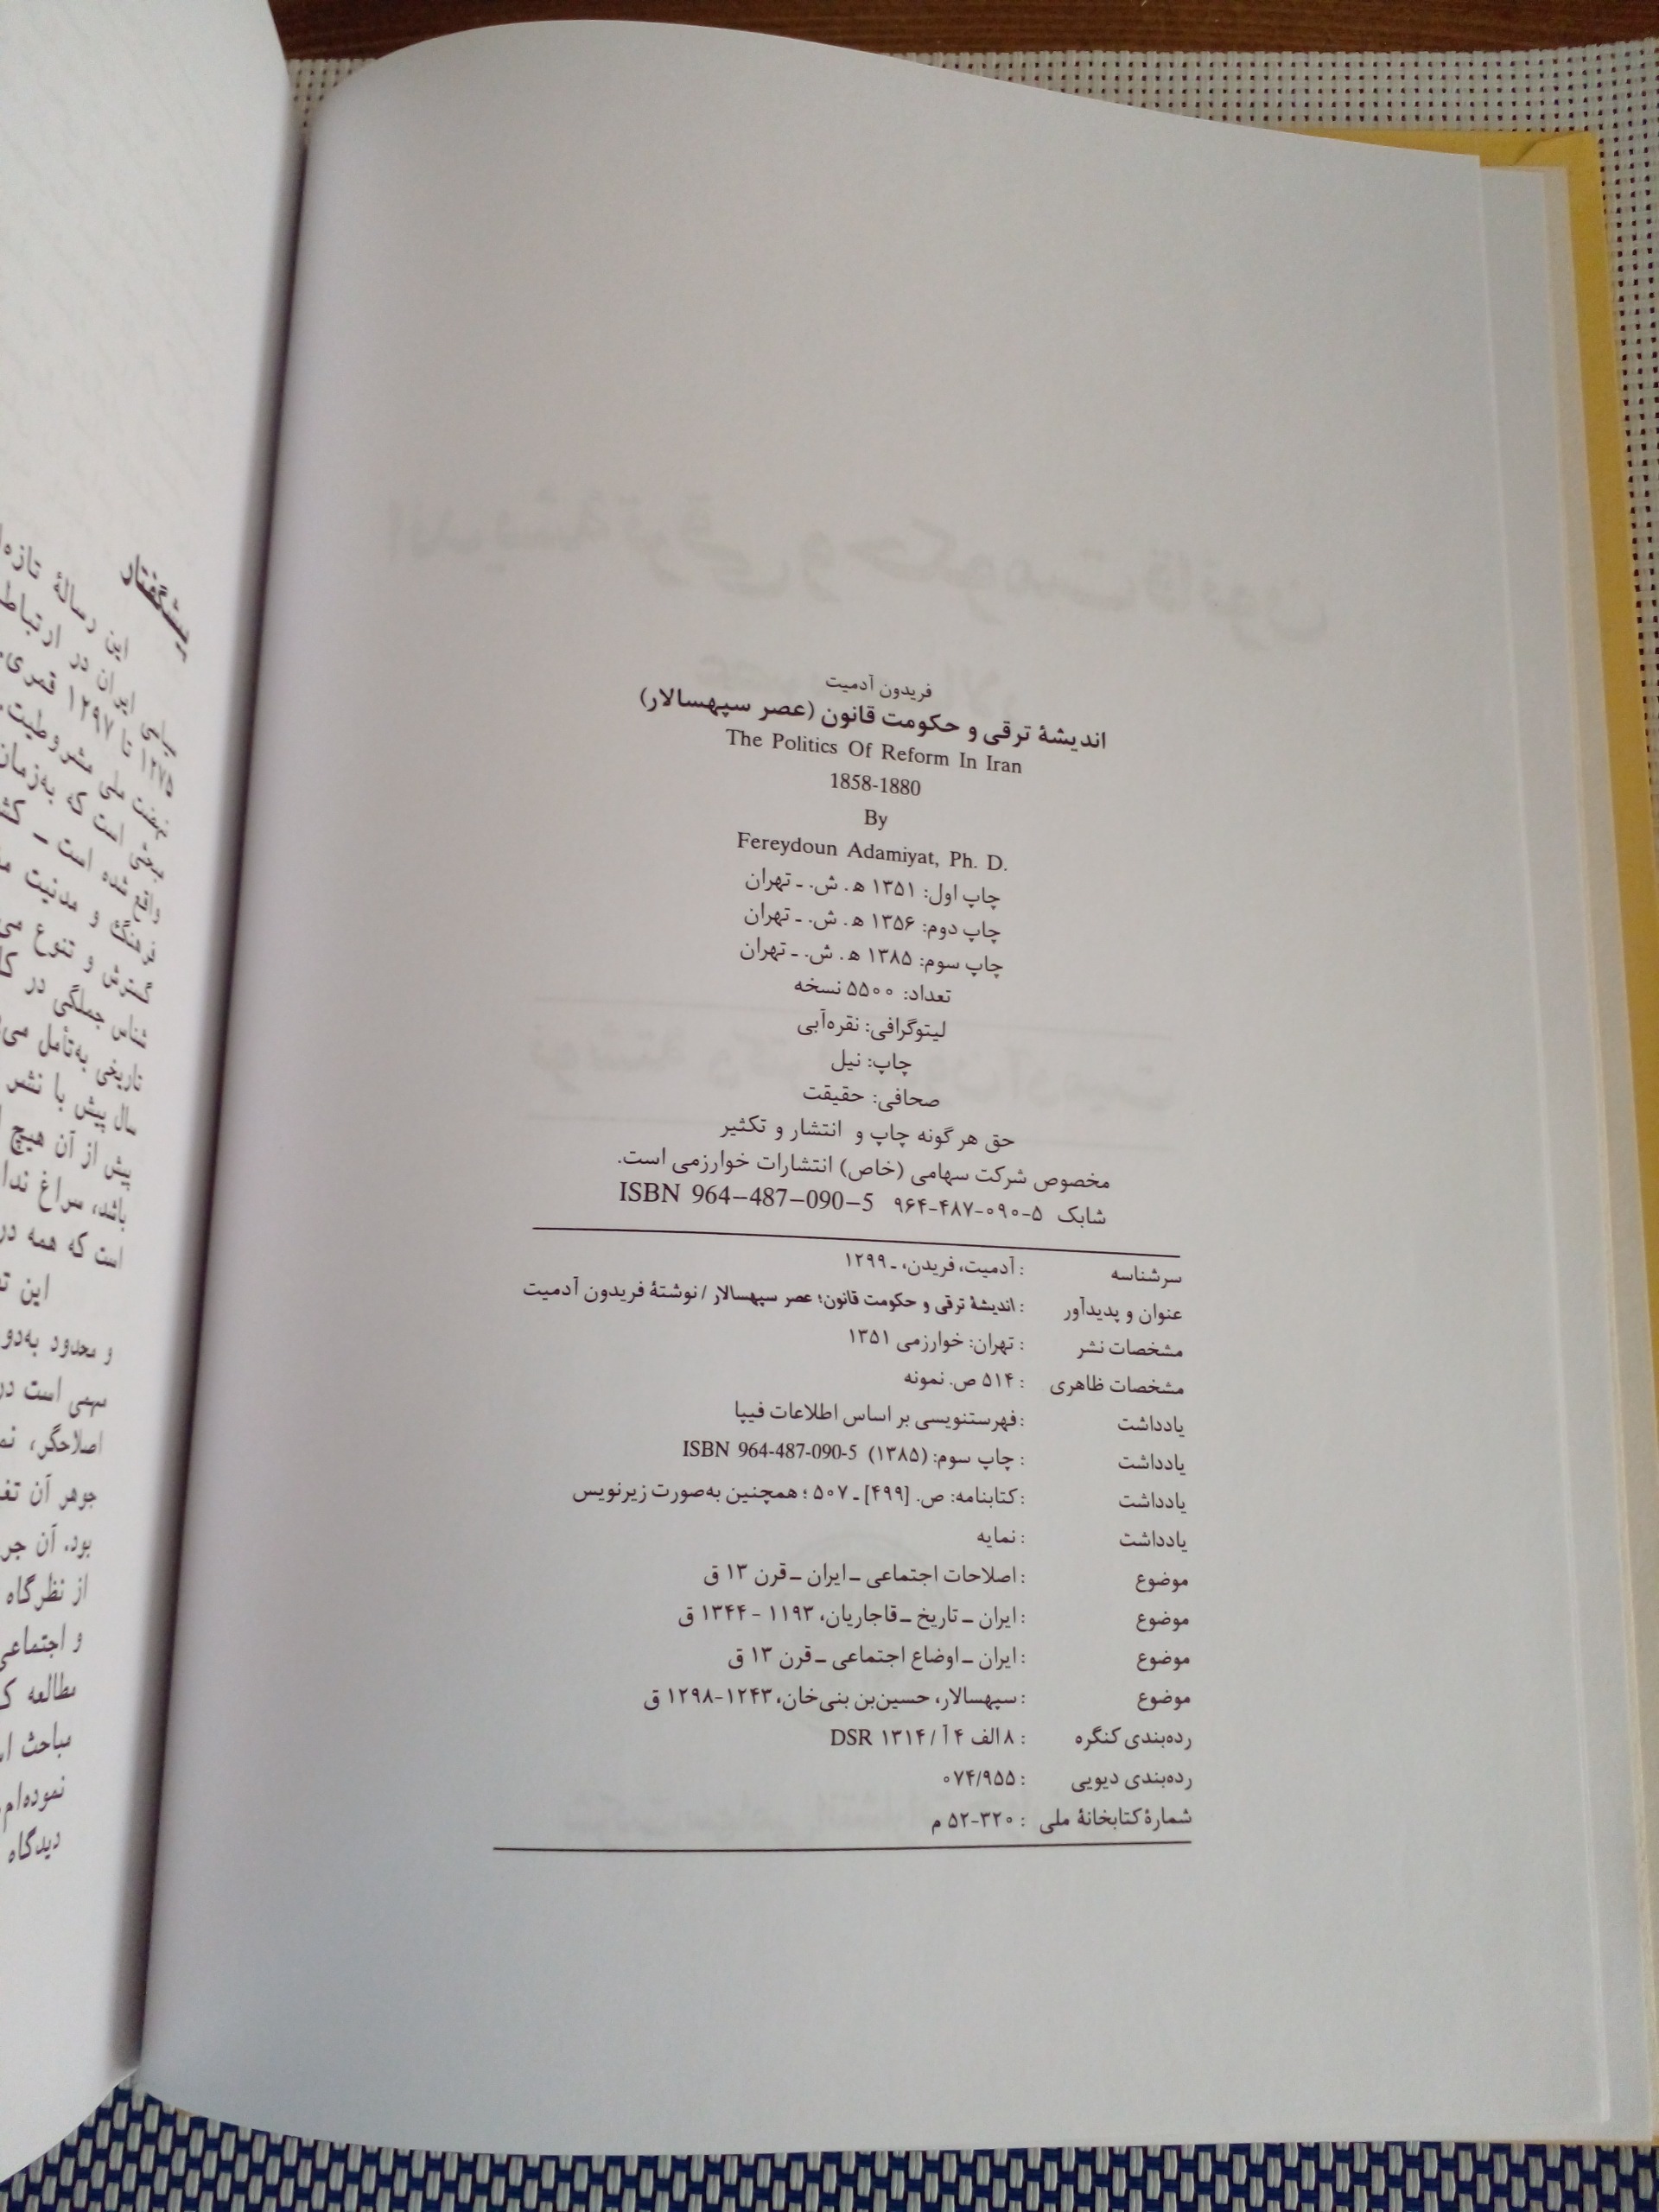 فریدون آدمیت
اندیشهٔ ترقی و حکومت قانون (عصر سپهسالار)
The Politics Of Reform In Iran
1858-1880
By
Fereydoun Adamiyat, Ph. D.
چاپ اول: ۱۳۵۱ ه. ش. ـ تهران
چاپ دوم: ۱۳۵۶ ه. ش. ـ تهران
چاپ سوم: ۱۳۸۵ ه. ش. ـ تهران
تعداد: ۵۵۰۰ نسخه
لیتوگرافی: نقره‌آبی
چاپ: نیل
صحافی: حقیقت
حق هر گونه چاپ و انتشار و تکثیر
مخصوص شرکت سهامی (خاص) انتشارات خوارزمی است.
شابک ۵-۰۹۰-۴۸۷-۹۶۴ ISBN 964–487–090–5
سرشناسه : آدمیت، فریدن، ـ ۱۲۹۹
عنوان و پدیدآور : اندیشهٔ ترقی و حکومت قانون؛ عصر سپهسالار / نوشتهٔ فریدون آدمیت
مشخصات نشر : تهران: خوارزمی ۱۳۵۱
مشخصات ظاهری : ۵۱۴ ص. نمونه
یادداشت :فهرستنویسی بر اساس اطلاعات فیپا
یادداشت : چاپ سوم: (۱۳۸۵) ISBN 964-487-090-5
یادداشت :کتابنامه: ص. [۴۹۹] ـ ۵۰۷ ؛ همچنین به‌صورت زیرنویس
یادداشت : نمایه
موضوع :اصلاحات اجتماعی ـ ایران ـ قرن ۱۳ ق
موضوع :ایران ـ تاریخ ـ قاجاریان، ۱۱۹۳ - ۱۳۴۴ ق
موضوع :ایران ـ اوضاع اجتماعی ـ قرن ۱۳ ق
موضوع :سپهسالار، حسین‌بن بنی‌خان، ۱۲۴۳-۱۲۹۸ ق
رده‌بندی کنگره : ۸ الف ۴ آ / ۱۳۱۴ DSR
رده‌بندی دیویی :۰۷۴/۹۵۵
شمارهٔ کتابخانهٔ ملی : ۳۲۰-۵۲ م
این رسالهٔ
ایران در ارتباط
۱۲۷۵ تا ۱۲۹۷ قمری.
واقع شده است ـ
فرهنگ و مدنیت
گسترش و تنوع
شناس جملگی در
تاریخی به‌تأمل
سال پیش با نشر
پیش از آن هیچ
باشد، سراغ
است که همه در
این
و محدود به‌دو
سهمی است در
اصلاحگر،
جوهر آن
بود. آن
از نظرگاه
و
مطالعه
مباحث
نموده‌ام
دیدگاه